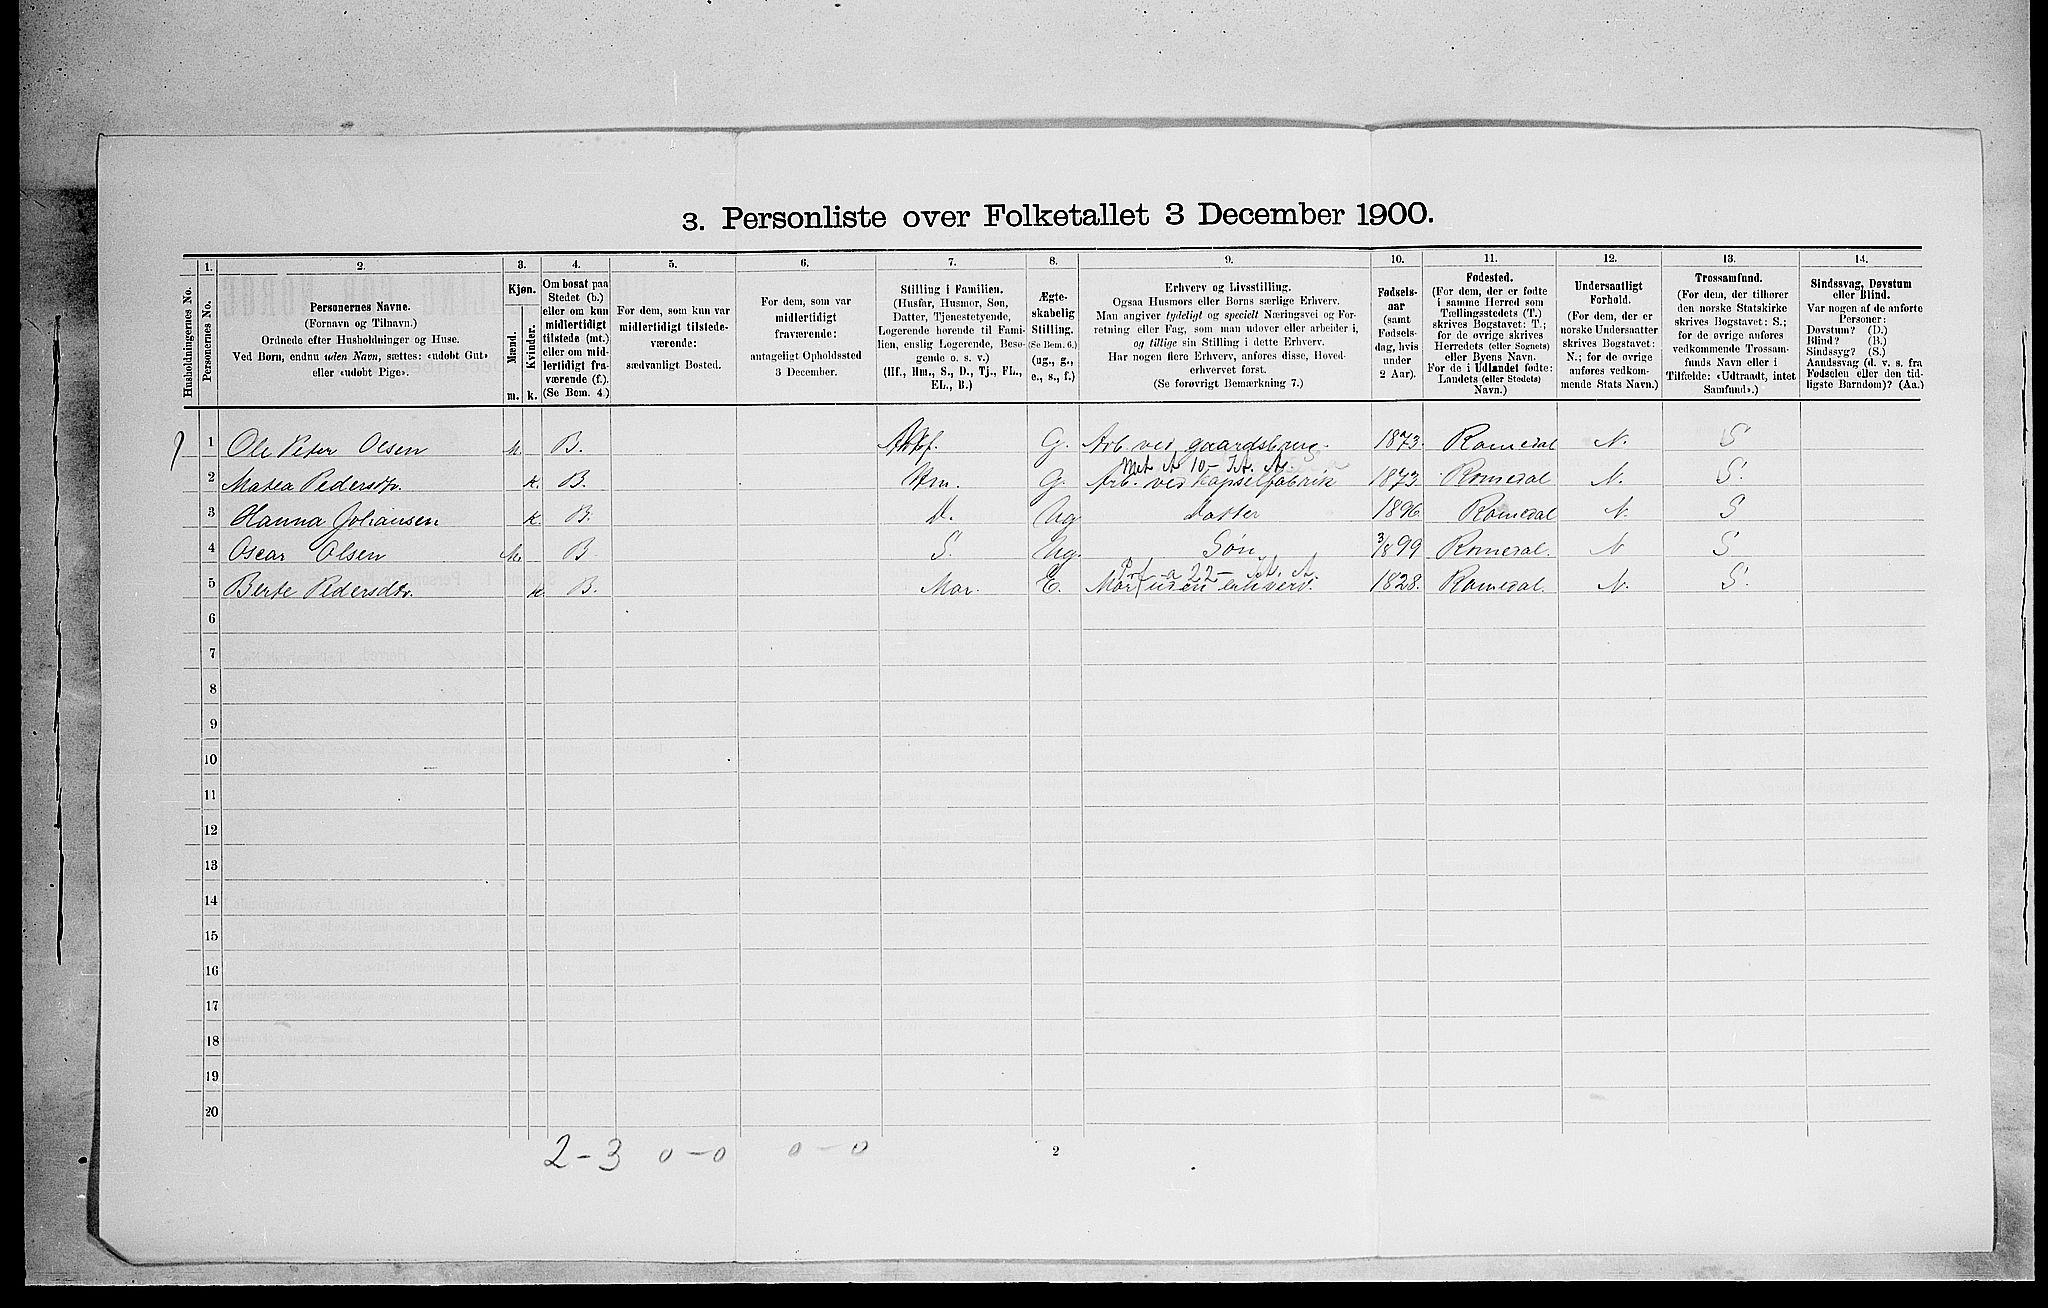 3. Personliste over Folketallet 3 December 1900.
Husholdningernes No.
1.
Personernes No.
2.
Personernes Navne.
(Fornavn og Tilnavn.)
Ordnede efter Husholdninger og Huse.
Ved Børn, endnu uden Navn, sættes: «udøbt Gut»
eller «udøbt Pige».
3.
Kjøn.
Mænd.
Kvinder.
m. k.
4.
Om bosat paa
Stedet (b.)
eller om kun
midlertidigt
tilstede (mt.)
eller om mid-
lertidigt fra-
værende (f.).
(Se Bem. 4.)
5.
For dem, som kun var
midlertidigt tilstede-
værende:
sædvanligt Bosted.
6.
For dem, som var
midlertidigt
fraværende:
antageligt Opholdssted
3 December.
7.
Stilling i Familien.
(Husfar, Husmor, Søn,
Datter, Tjenestetyende,
Logerende hørende til Fami-
lien, enslig Logerende, Besø-
gende o. s. v.)
(Hf., Hm., S., D., Tj., FL.,
EL., B.)
8.
Ægte-
skabelig
Stilling.
(Se Bem. 6.)
(ug., g.,
e., s., f.)
9.
Erhverv og Livsstilling.
Ogsaa Husmors eller Børns særlige Erhverv.
Man angiver tydeligt og specielt Næringsvei og For-
retning eller Fag, som man udøver eller arbeider i,
og tillige sin Stilling i dette Erhverv.
Har nogen flere Erhverv, anføres disse, Hoved-
erhvervet først.
(Se forøvrigt Bemærkning 7.)
10.
Fødsels-
aar
(samt
Fødsels-
dag, hvis
under
2 Aar).
11.
Fødested.
(For dem, der er fødte
i samme Herred som
Tællingsstedets (T.)
skrives Bogstavet: T.;
for de øvrige skrives
Herredets (eller Sognets)
eller Byens Navn.
For de i Udlandet fødte:
Landets (eller Stedets)
Navn.)
12.
Undersaatligt
Forhold.
(For dem, der er
norske Undersaatter
skrives Bogstavet:
N.; for de øvrige
anføres vedkom-
mende Stats Navn.)
13.
Trossamfund.
(For dem, der tilhører
den norske Statskirke
skrives Bogstavet: S.;
for de øvrige anføres
vedkommende Trossam-
funds Navn eller i
Tilfælde: «Udtraadt, intet
Samfund».)
14.
Sindssvag, Døvstum
eller Blind.
Var nogen af de anførte
Personer:
Døvstum? (D.)
Blind? (B.)
Sindssyg? (S.)
Aandssvag (d. v. s. fra
Fødselen eller den tid-
ligste Barndom)? (Aa.)
1 Ole Peter Olsen M. B. Hf. G. Arb. ved gaardsbrug. 1873. Romedal N. S
2 Matea Pedersdtr. K. B. Hm. G. Arb. ved Kapselfabrik 1873. Romedal N. S.
3 Hanna Johansen K. B. D. Ug datter 1896 Romedal N S
4 Oscar Olsen M. B S. Ug. Søn 3/8 99 Romedal. N S.
5 Berte Pedersdtr. K. B. Mor. E. Mor uden erhverv. 1828. Romedal. N. S.
6
7
8
9
10
11
12
13
14
15
16
17
18
19
20
2-3 0-0 0-0 2